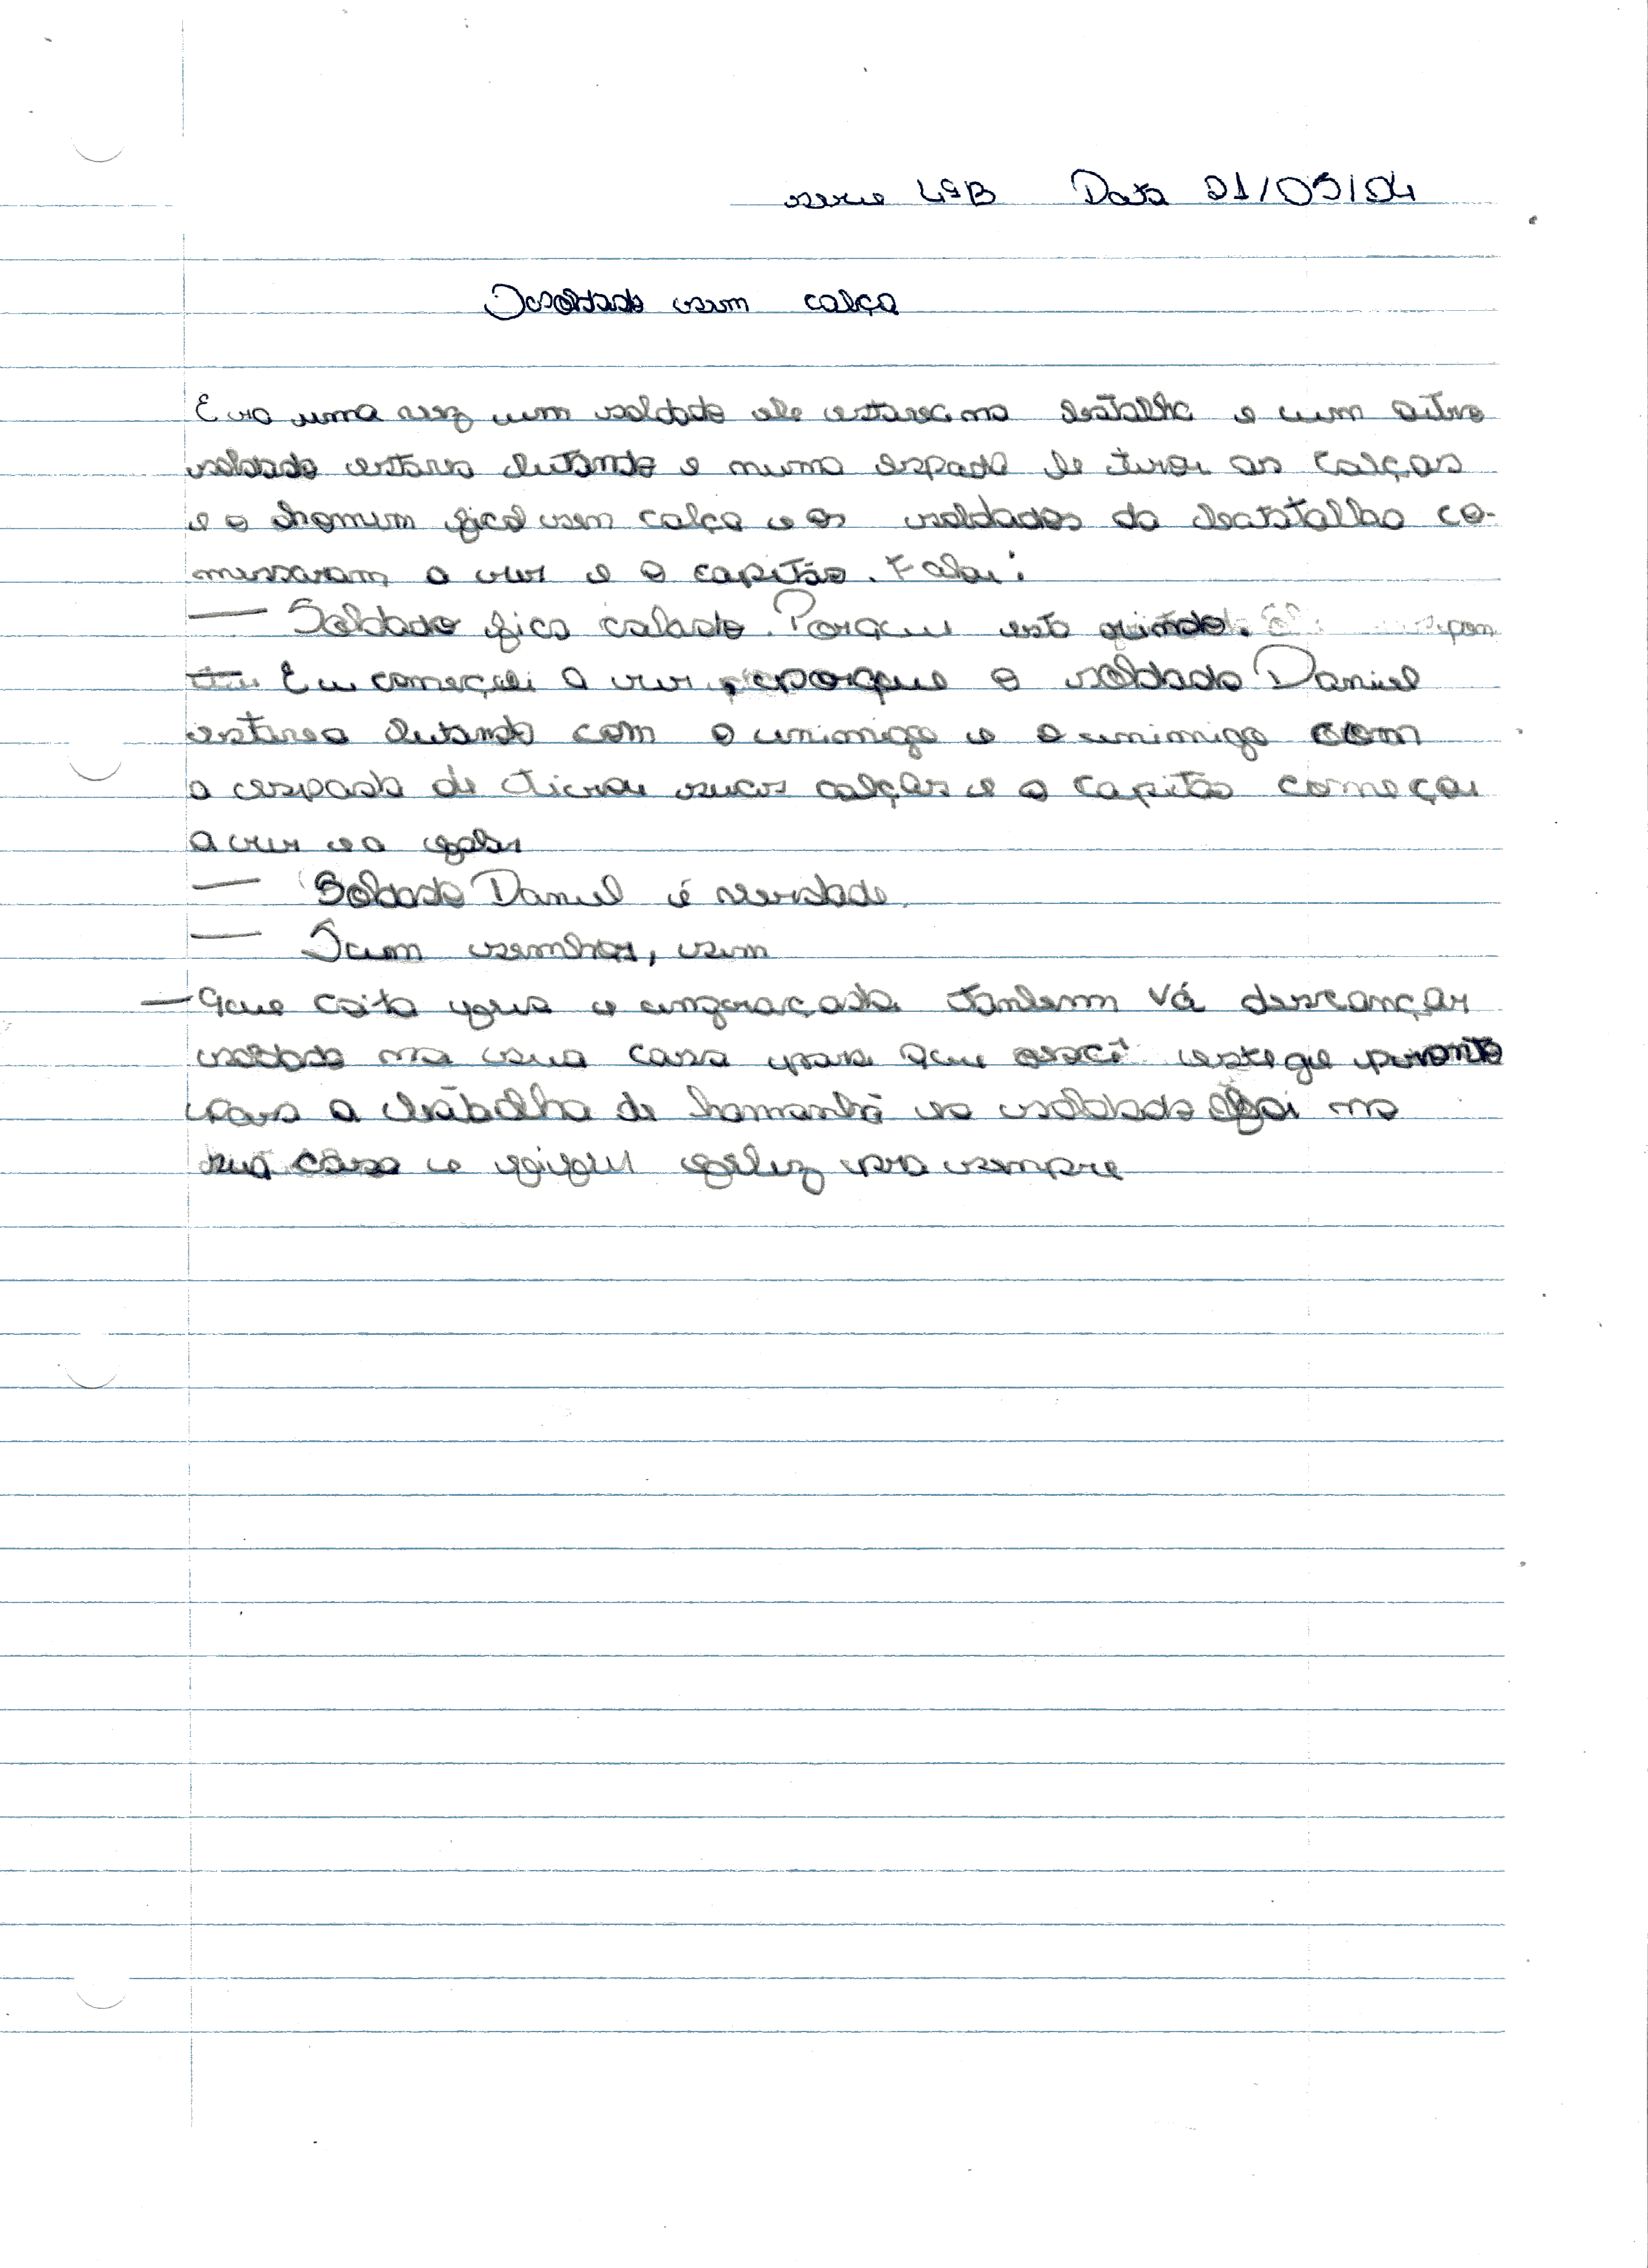 serie 4ªB Data 21/05/04
O soldado sem calça
Era uma vez um soldado ele estava na batalha e um outro
soldado estava lutando e numa espada le tirou as calças
e o homem fico sem calça e os soldados do batatalhao co-
messaram a rir e o capitão. Falou:
— Soldado fica calado. Porque esta rindo.
Eu começei a rir, porque o soldado Daniel
estava lutando com o inimigo e o inimigo com
a espada de tirou suas calças e o capitão começou
a rir e a falar
— Soldado Daniel é verdade.
— Sim senhor, sim
— Que coita engraçada tanbem vá descançar
soldado na sua casa para que você estege pronto
para a batalha de hamanhã e o soldado foi na
sua casa e feliz pra sempre